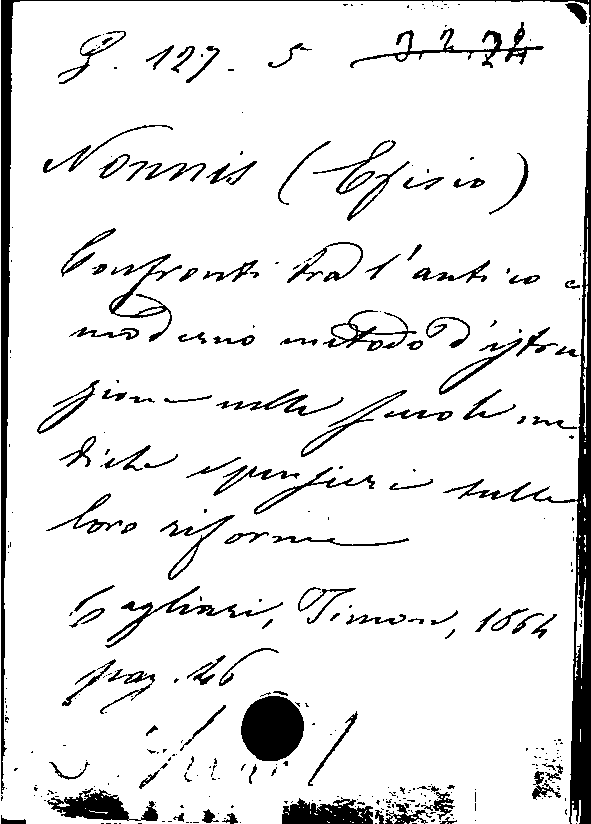 G. 127. 5 3.2.24
Nonnis (Efisio)
Confronti tra l'antico e
moderno metodo d'istru
zione nelle scuole me.
diche e pensieri sulla
loro riforma
Cagliari, Timon, 1864
pag. 26